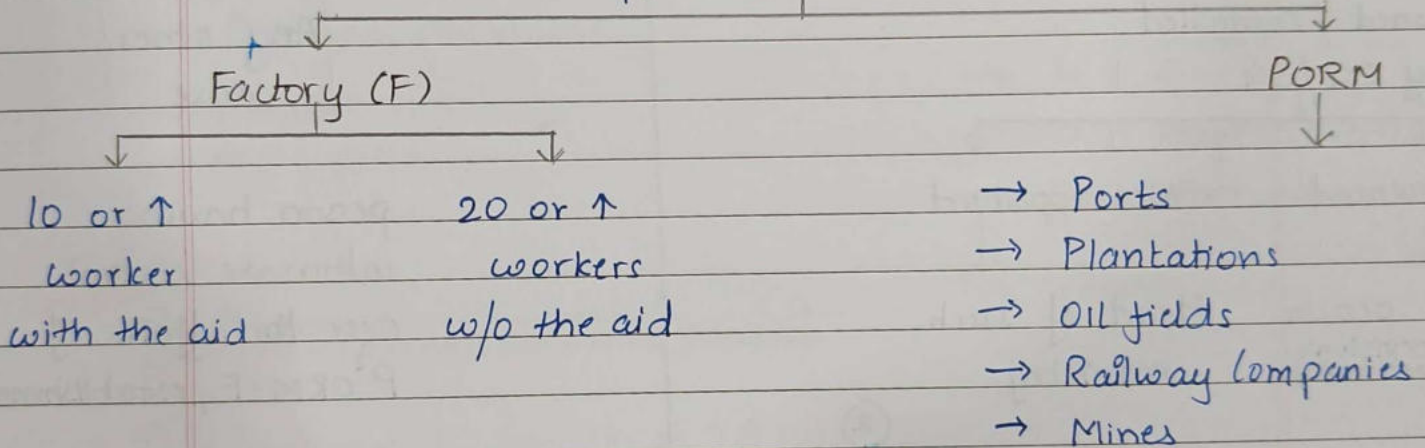 Factory (F)
PORM
10 or ↑
worker
with the aid
20 or ↑
workers
w/o the aid
→ Ports
→ Plantations
→ Oil fields
→ Railway Companies
→ Mines